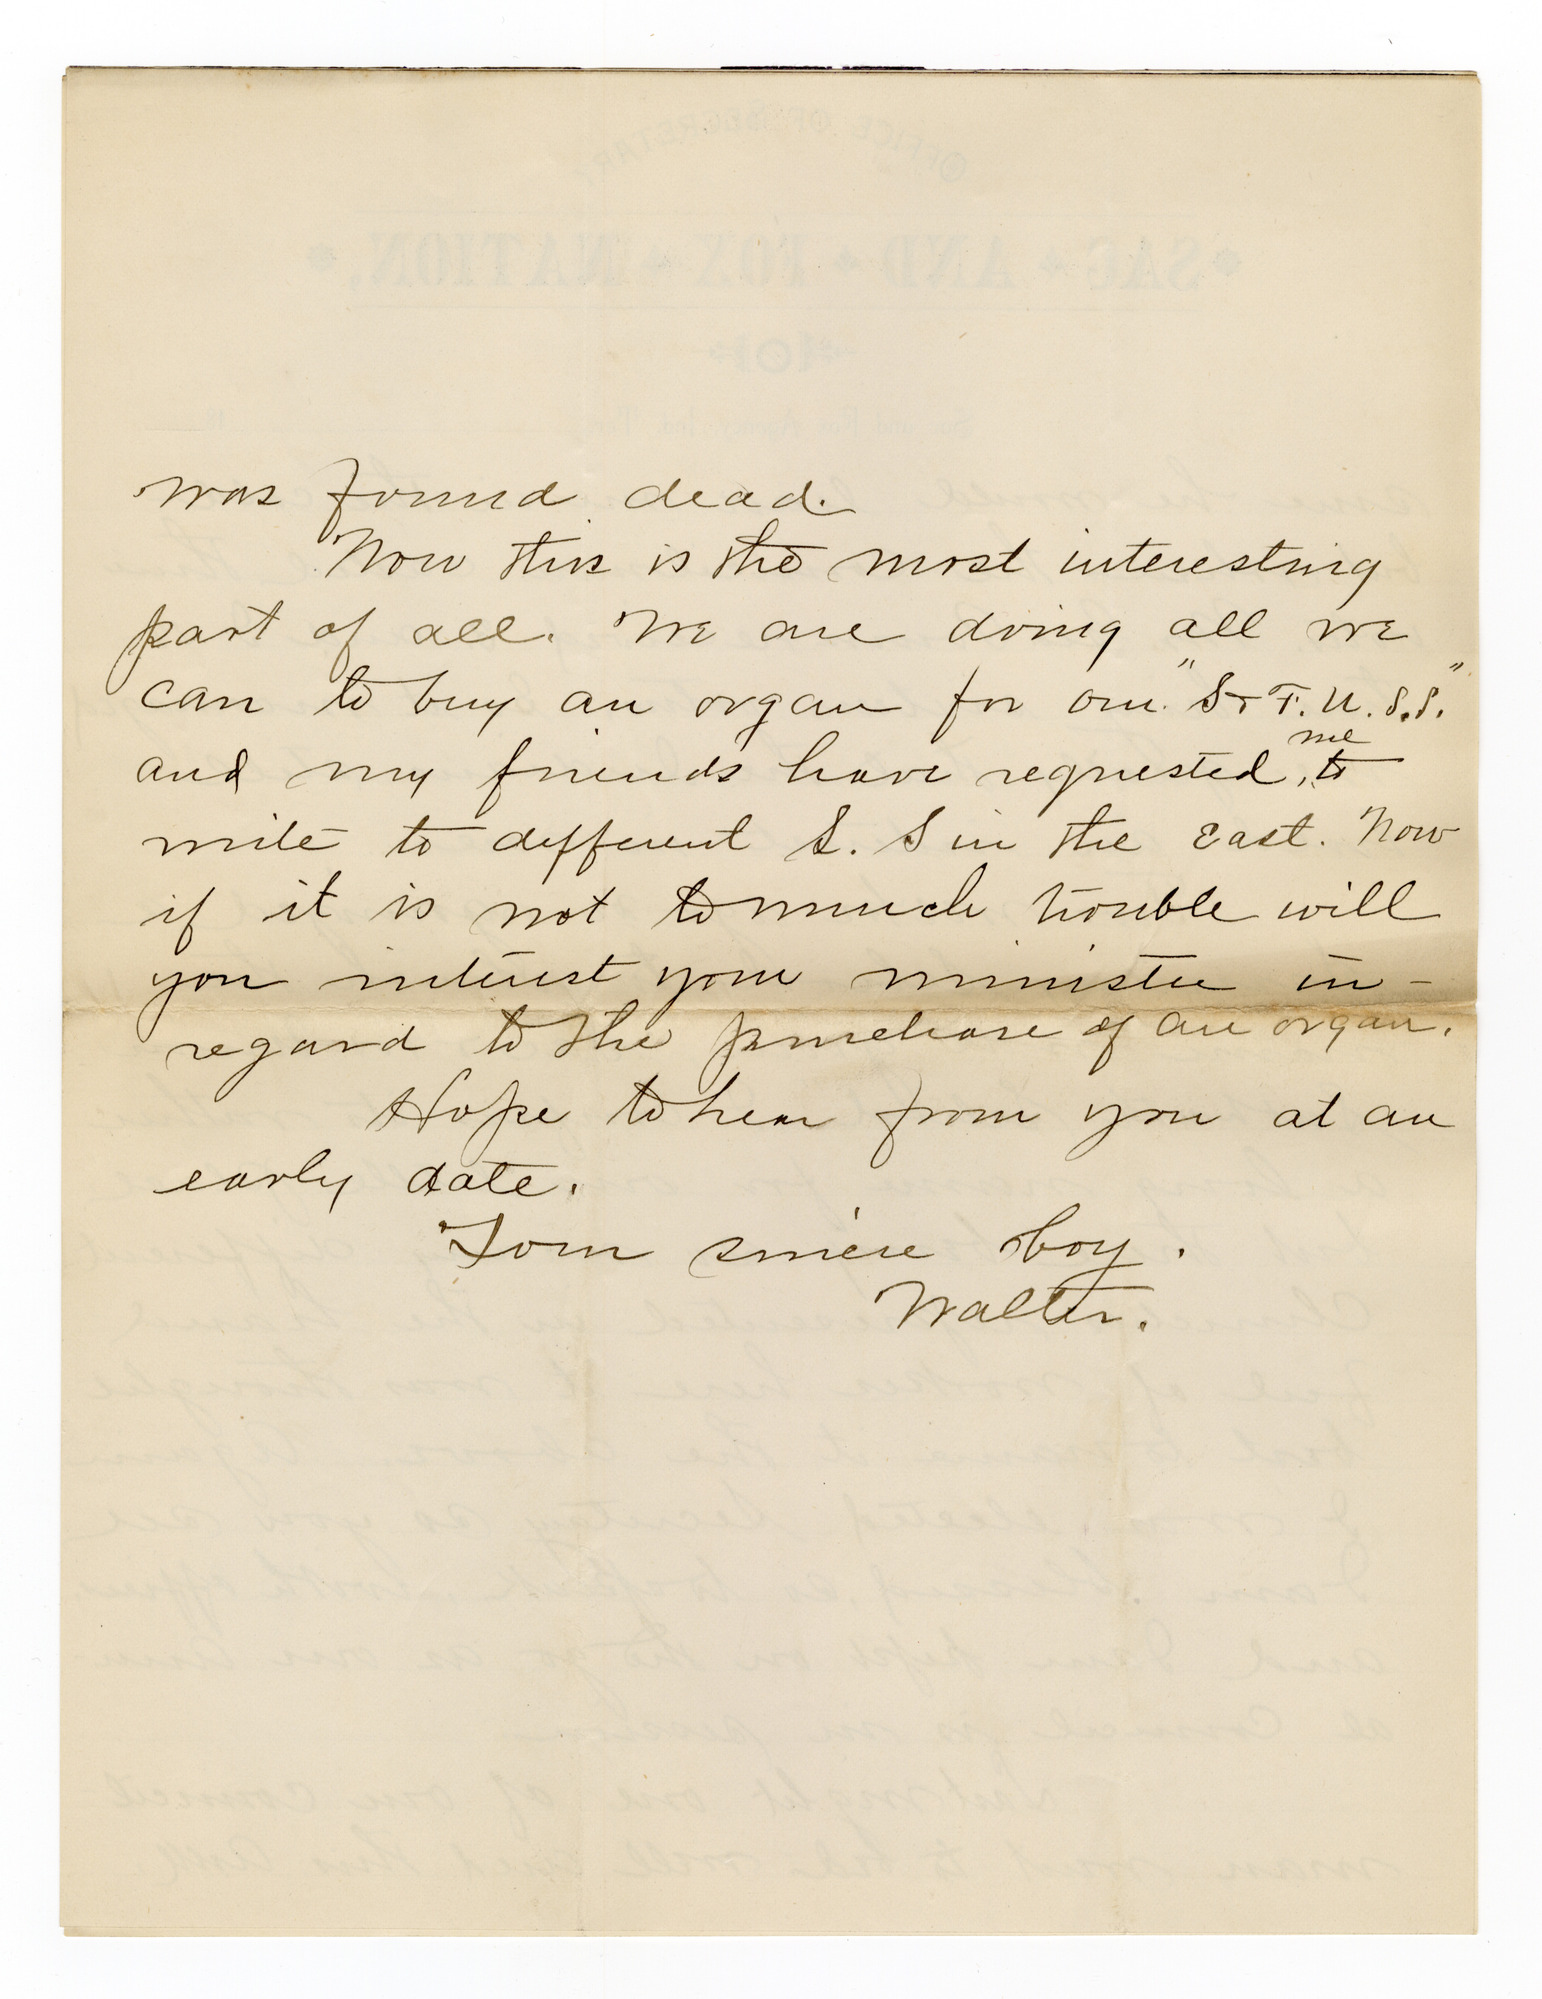 was found dead.
Now this is the most interesting
part of all. We are doing all we
can to buy an organ for our "S & F. U. S. S."
and my friends have requested, me to
write to different S. S in the East. Now
if it is not to much trouble will
you interest your minister in-
regard to the purchase of an organ.
Hope to hear from you at an
early date.
Your sincere boy.
Walter.